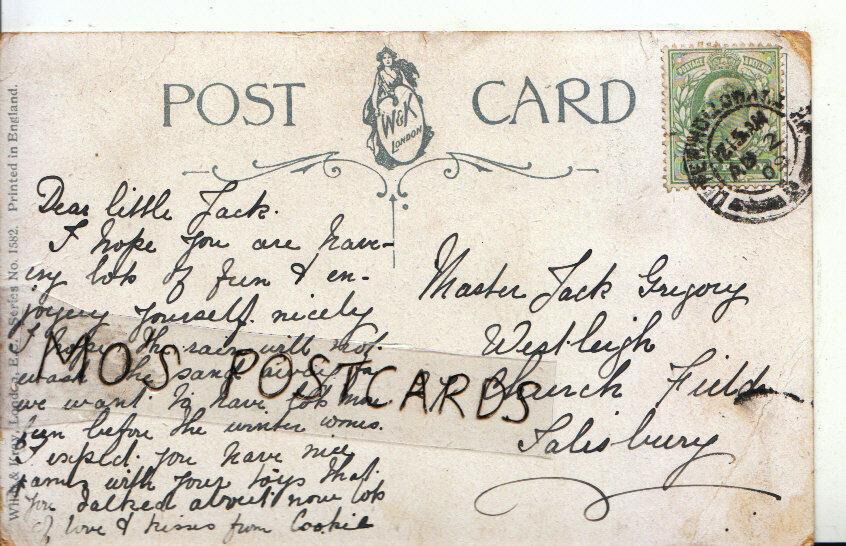 POST CARD
W&K
LONDON
POSTAGE & REVENUE
Wildt & Kray, London, E.C. Series No. 1582. Printed in England.
Dear little Jack.
I hope you are have-
ing lots of fun & en-
joying yourself nicely
I hope the rain will not
wash the sand away
we want to have lots more
fun before the winter comes.
I expect you have nice
games with your toys that
you talked about now lots
of love & kisses from Cookie
Master Jack Gregory
Westleigh
Church Fields
Salisbury
MOS POSTCARDS